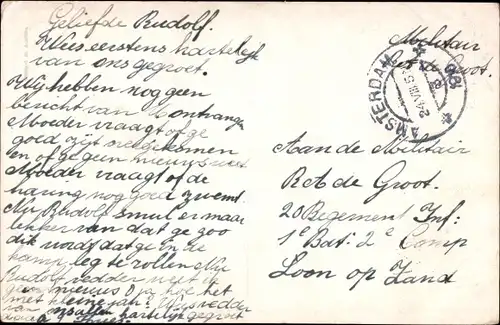 Geliefde Rudolf.
Wees eerstens hartelijk
van ons gegroet.
Wij hebben nog geen
bericht van U ontvangen
Moeder vraagt of ge
goed zijt
en of ge geen nieuws
Moeder vraagt of de
haring nog goed zwemt.
Nu Rudolf smul er maar
lekker van dat ge zoo
dik wordt dat ge in de
kamp leg te rollen Nu
Rudolf verder niet
nieuws O ja hoe
met kleine jan?
van ons allen hartelijk gegroet
Militair
AMSTERDAM
Aan de Militair
R de Groot.
20 Regement Inf:
1e Bat: 2e Comp
Loon op Zand